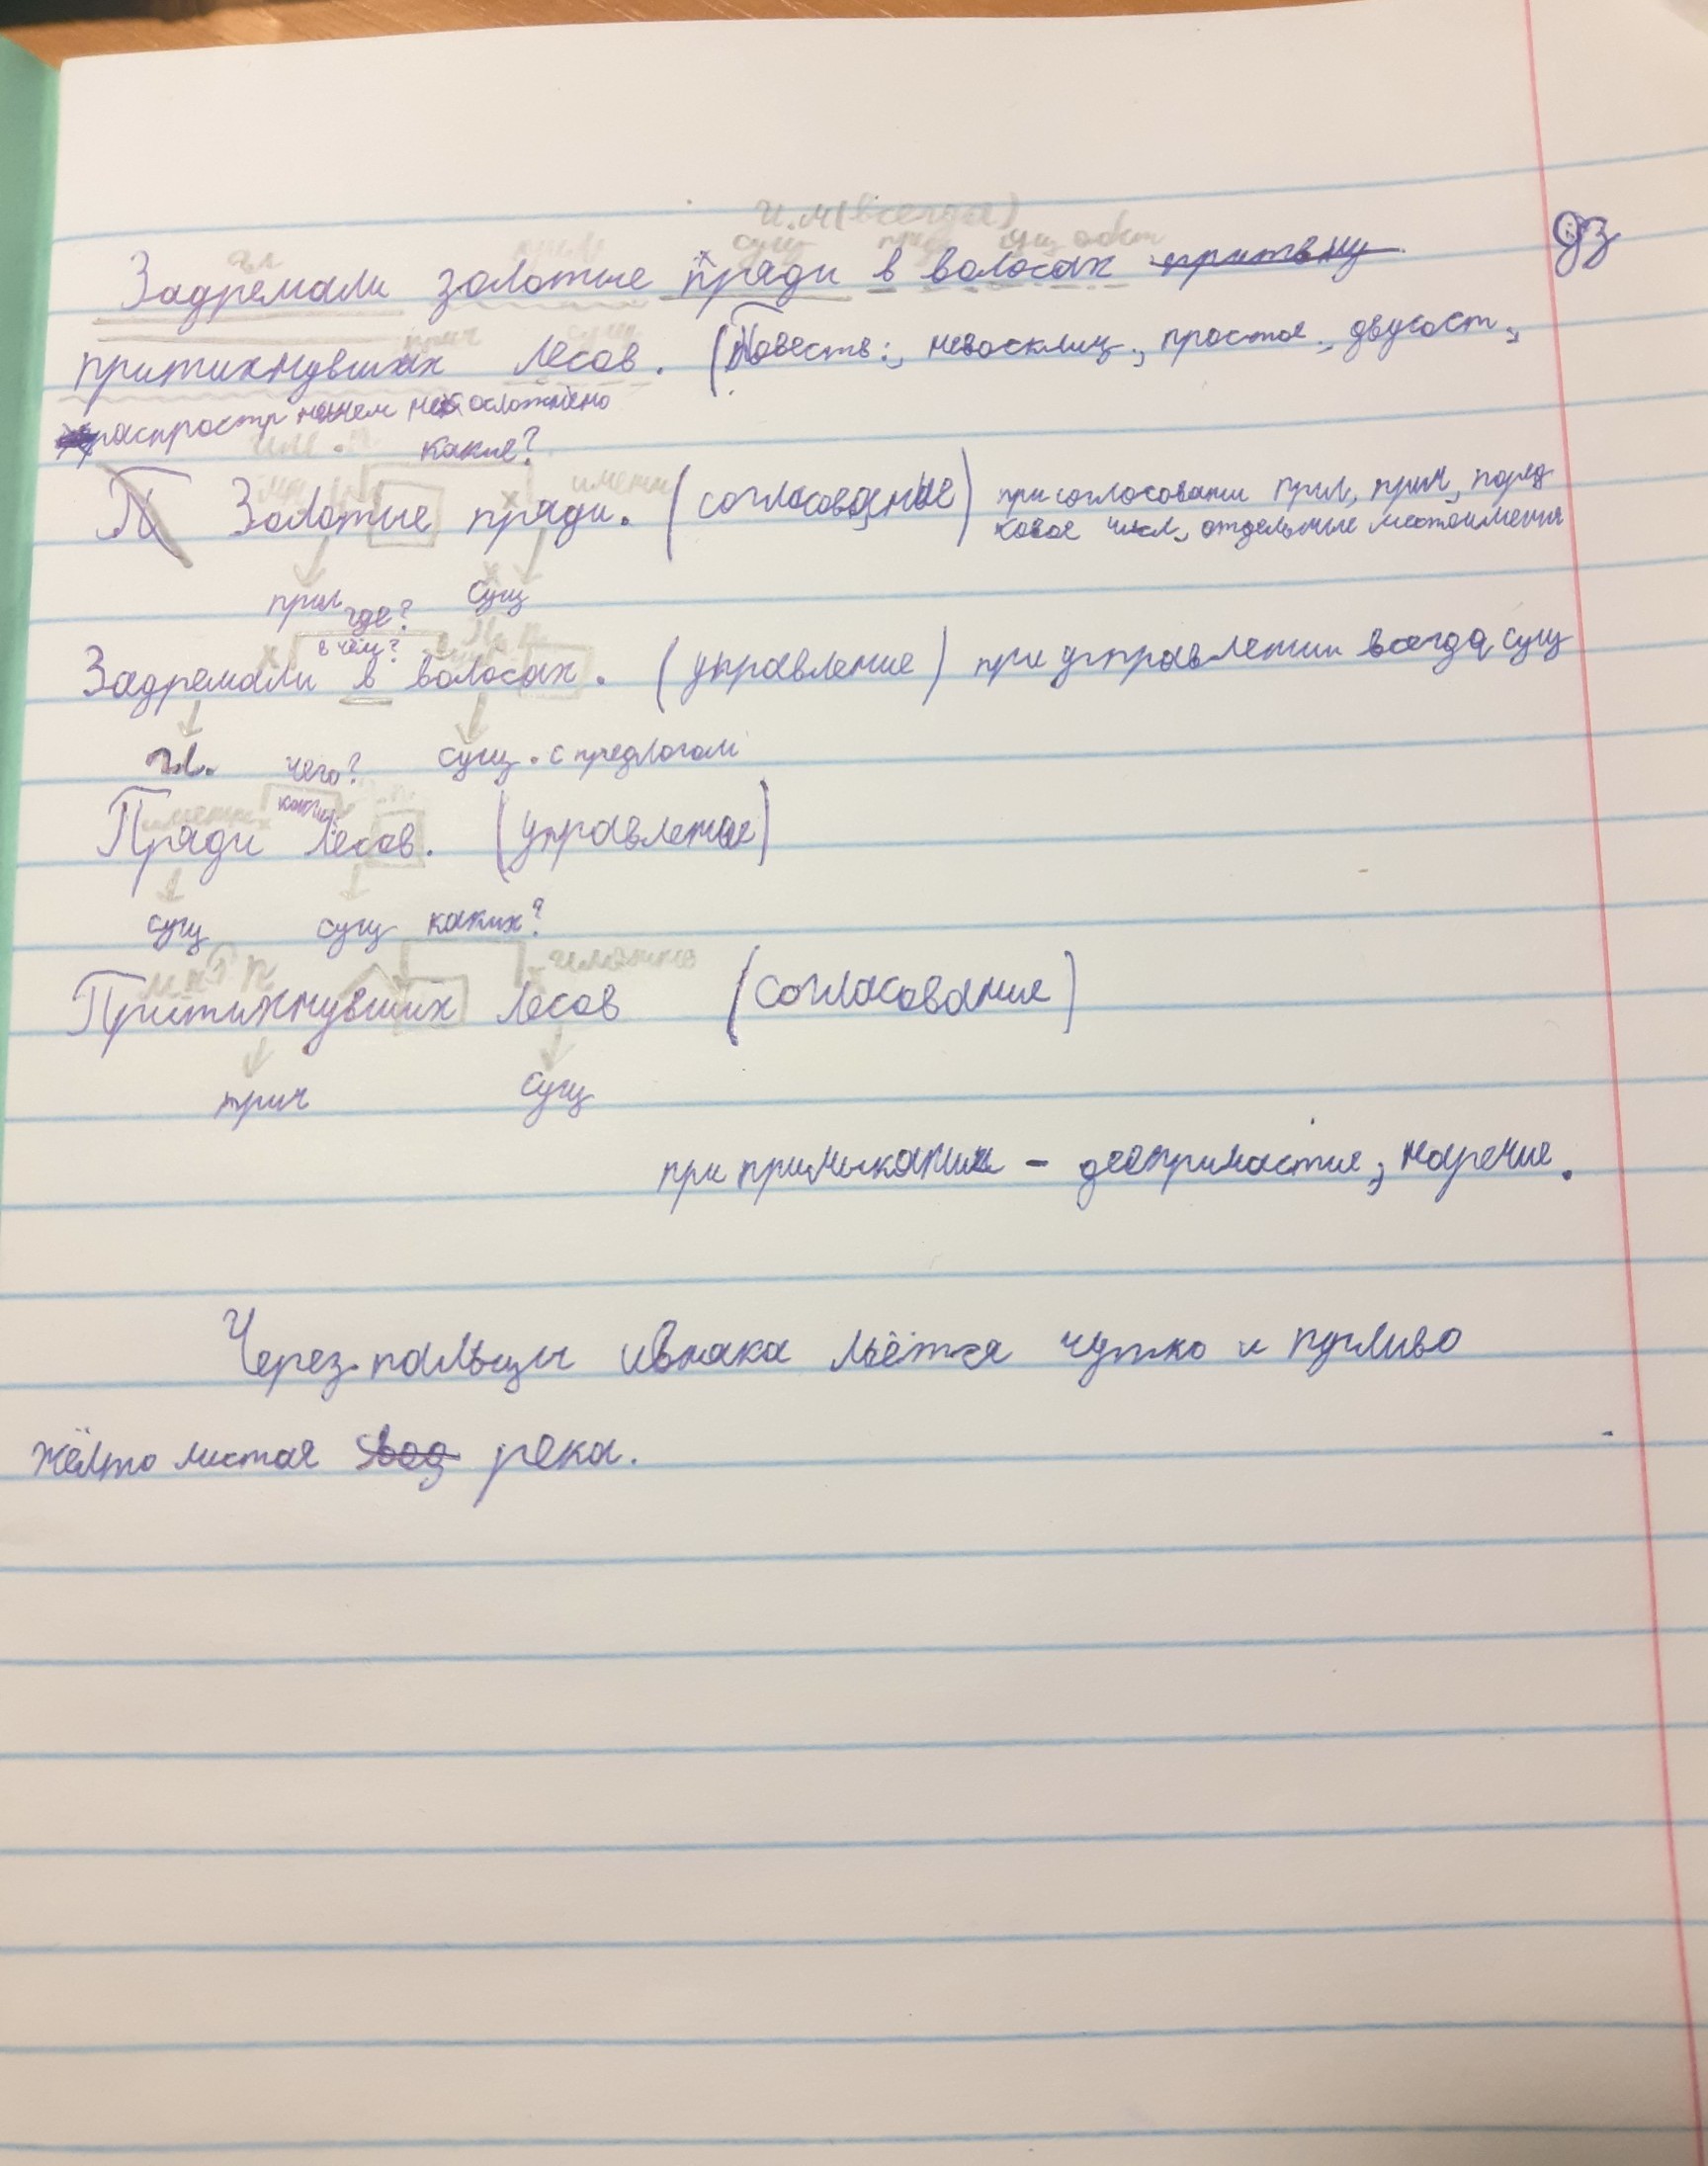 И.п (всегда)
гл прил сущ пред сущ
Задремали золотые пряди в волосах притвну
дз
прич сущ
притихнувших лесов. (Повеств., невосклиц., простое, двусост.,
распростр ничем не осложнено
какие?
П Золотые пряди. (согласование) при согласовани прил, прич, поряд
ковое числ, отдельные местоимения
прил сущ
где?
в чём?
Задремали в волосах. (управление) при управлении всегда сущ
гл. сущ. с предлогом
чего?
каких
Пряди лесов. (управление)
сущ сущ
каких?
Притихнувших лесов (согласование)
прич сущ
при примыкании - деепричастие, наречие.
Через пальцы ивняка льётся чутко и пугливо
жёлто листая вод река.